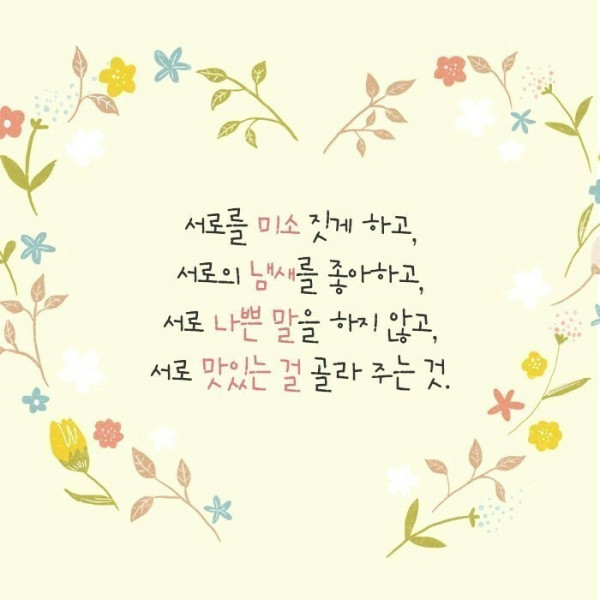 서로를 미소 짓게 하고,
서로의 냄새를 좋아하고,
서로 나쁜 말을 하지 않고,
서로 맛있는 걸 골라 주는 것.